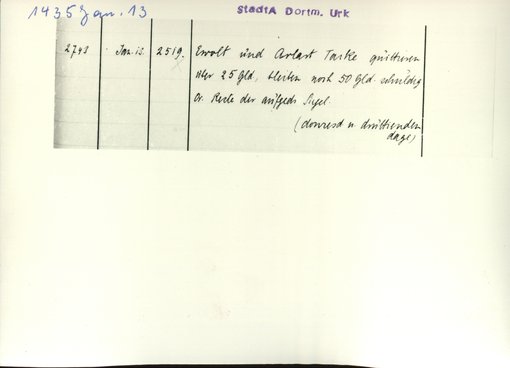 1435 Jan. 13
StadtA Dortm. Urk
2743 Jan. 13. 2519. Ewolt und Arlart Taske quittieren
über 25 Gld., bleiben noch 50 Gld. schuldig
Or. Reste der aufgedr. Siegel.
(donresd. n. druttienden
dage)